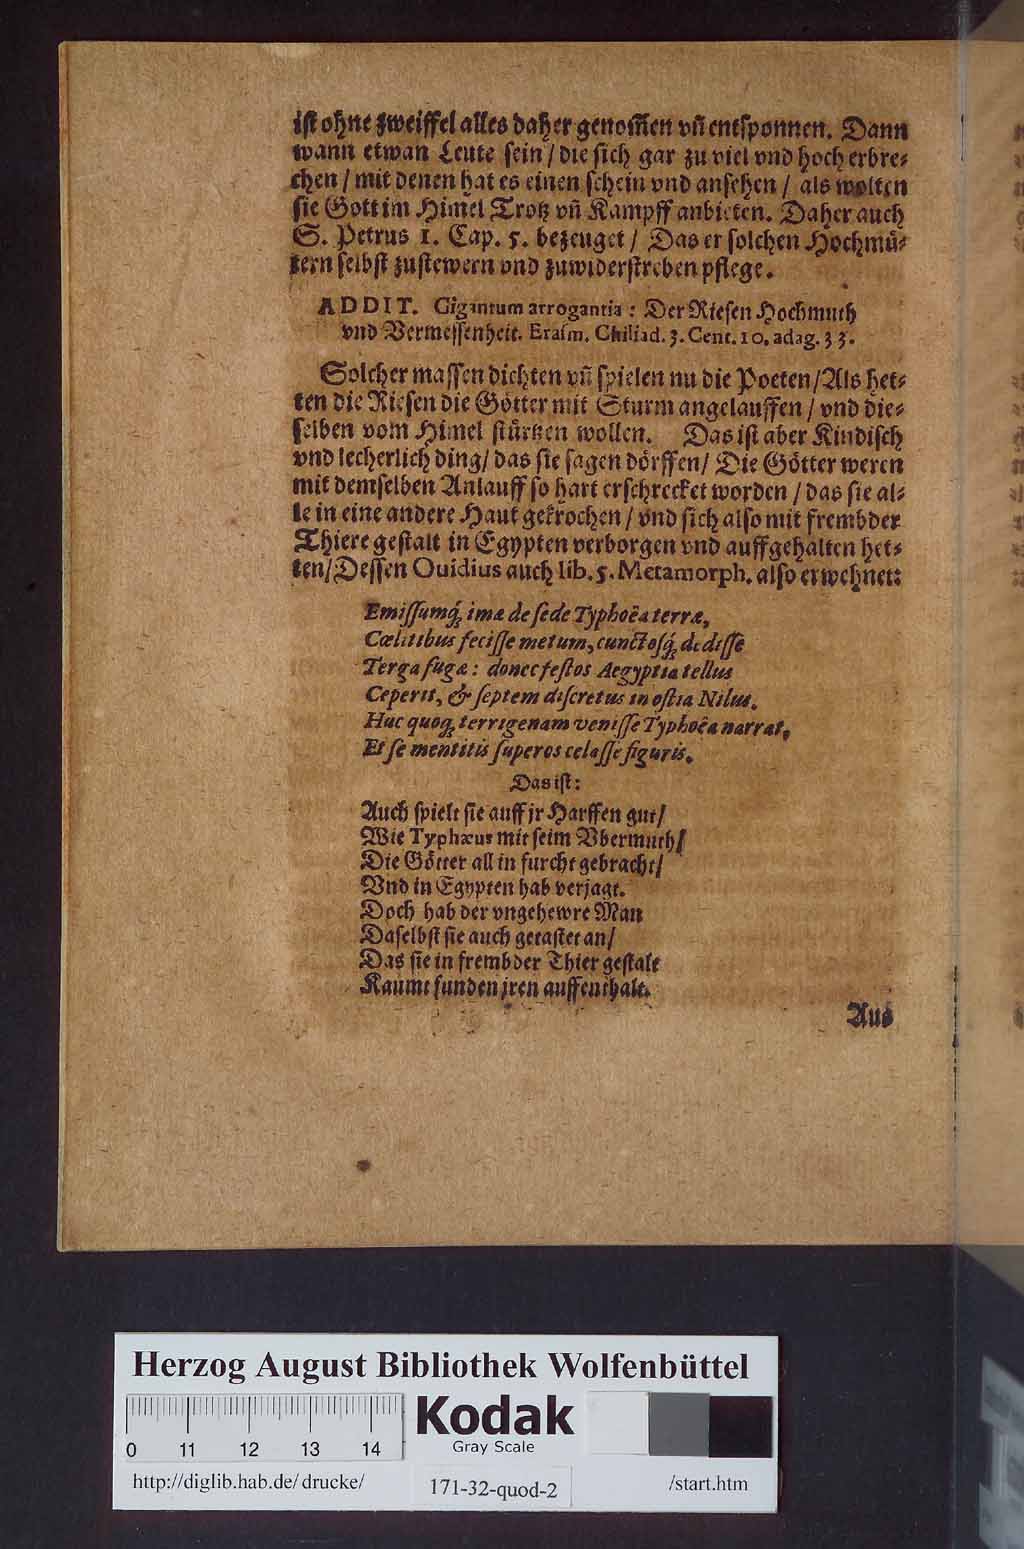 ist ohne zweiffel alles daher genom̃en vñ entsponnen. Dann
wann etwan Leute sein / die sich gar zu viel vnd hoch erbre⸗
chen / mit denen hat es einen schein vnd ansehen / als wolten
sie Gott im Himel Trotz vñ Kampff anbieten. Daher auch
S. Petrus 1. Cap. 5. bezeuget / Das er solchen Hochmü⸗
tern selbst zustewern vnd zuwiderstreben pflege.
ADDIT. Gigantum arrogantia : Der Riesen Hochmuth
vnd Vermessenheit. Erasm. Chiliad. 3. Cent. 10. adag. 33.
Solcher massen dichten vñ spielen nu die Poeten / Als het⸗
ten die Riesen die Götter mit Sturm angelauffen / vnd die⸗
selben vom Himel stürtzen wollen. Das ist aber Kindisch
vnd lecherlich ding / das sie sagen dörffen / Die Götter weren
mit demselben Anlauff so hart erschrecket worden / das sie al⸗
le in eine andere Haut gekrochen / vnd sich also mit frembder
Thiere gestalt in Egypten verborgen vnd auffgehalten het⸗
ten / Dessen Ouidius auch lib. 5. Metamorph. also erwehnet:
Emissumq́; ima de sede Typhoëa terræ,
Cœlitibus fecisse metum, cunctosq́; dedisse
Terga fugæ : donec fessos Aegyptia tellus
Ceperit, & septem discretus in ostia Nilus.
Huc quoq; terrigenam venisse Typhoëa narrat,
Et se mentitis superos celasse figuris.
Das ist:
Auch spielt sie auff jr Harffen gut /
Wie Typhœus mit seim Vbermuth /
Die Götter all in furcht gebracht /
Vnd in Egypten hab verjagt.
Doch hab der vngehewre Man
Daselbst sie auch getastet an /
Das sie in frembder Thier gestalt
Kaumt funden jren auffenthalt.
Aus
Herzog August Bibliothek Wolfenbüttel
0 11 12 13 14
Kodak
Gray Scale
http://diglib.hab.de/ drucke/
171-32-quod-2
/start.htm